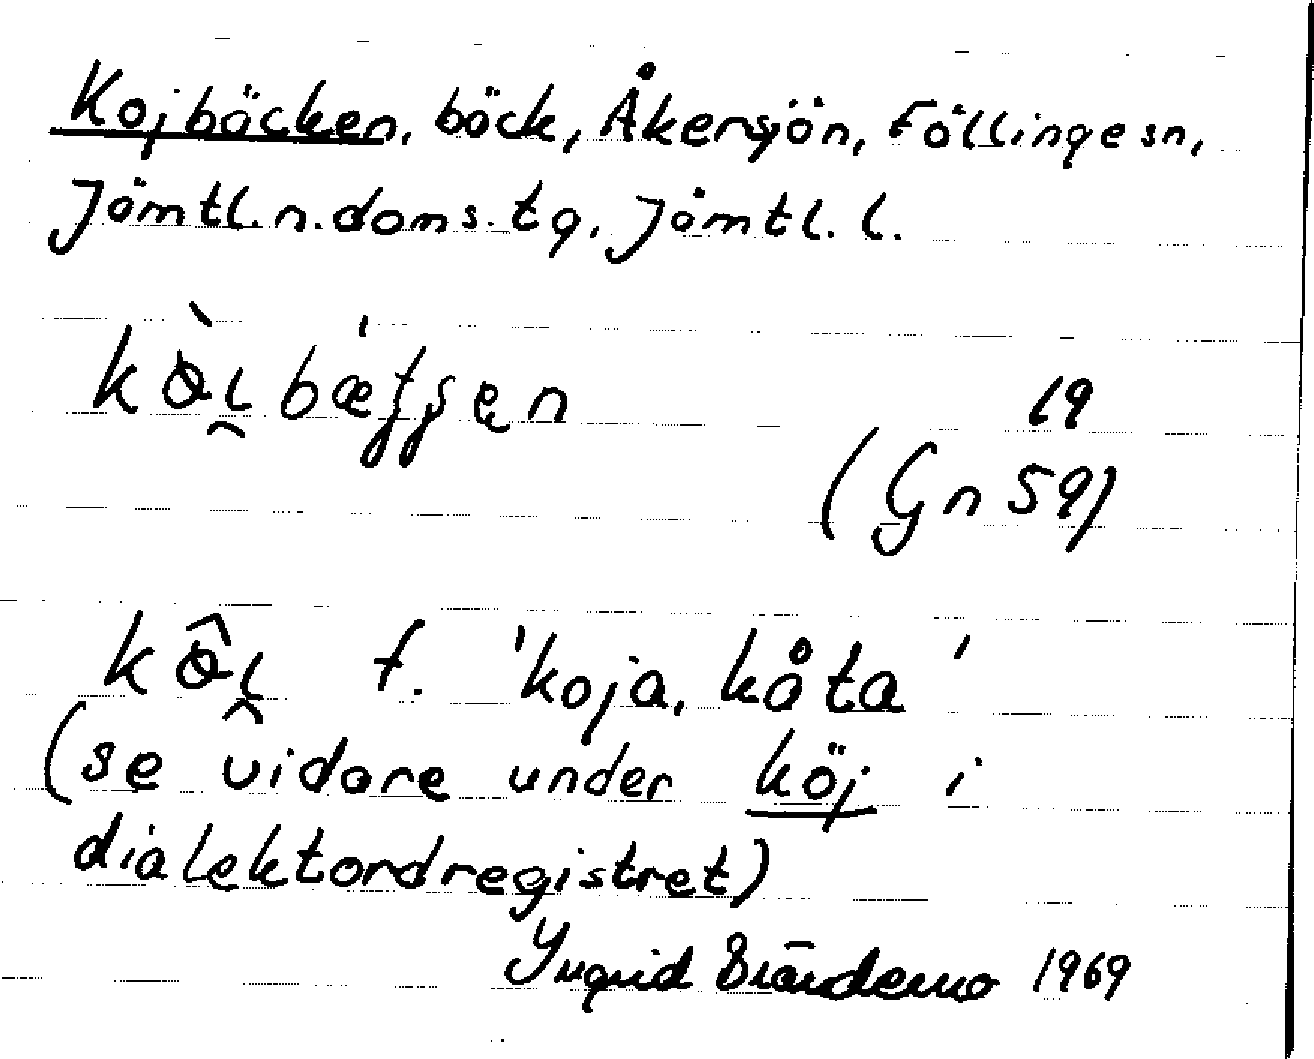 Kojbäcken, bäck, Åkersjön, Föllinge sn,
Jämtl.n.doms.tg, Jämtl. l.
19
(Gn 59)
f. 'koja, kåta'
(se vidare under köj i
dialektordregistret)
Yngrid Brändemo 1969